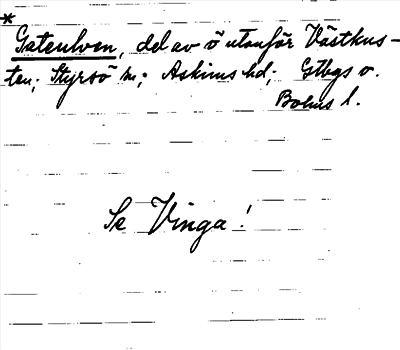 *
Gatenhven, del av ö utanför Västkus-
ten; Styrsö sn; Askims hd; Gtbgs o.
Bohus l.
Se Vinga!